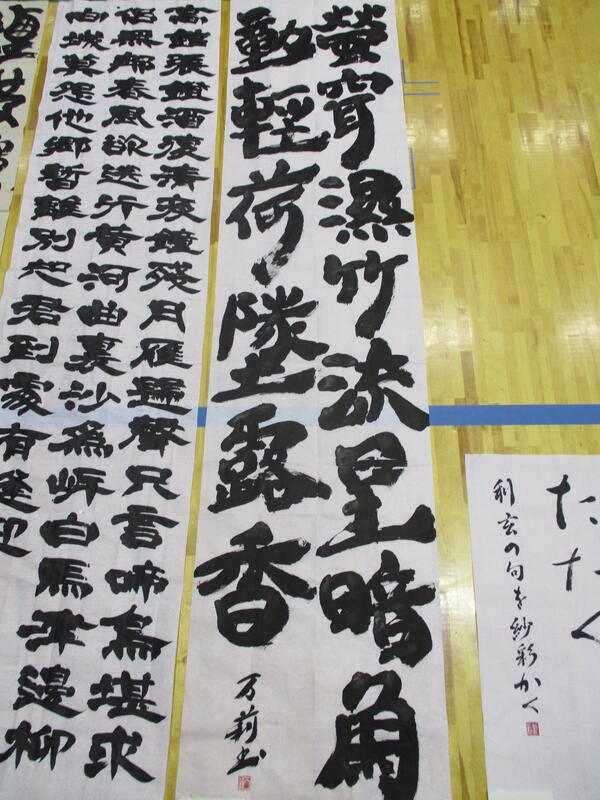 たたく
利玄の句を紗彩かく
螢穿濕竹流星暗魚
動輕荷墜露香
万莉書
高館張燈酒復清夜鐘殘月雁歸聲只言啼鳥堪求
侶無那春風欲送行黃河曲裏沙爲岸白馬津邊柳
向城莫怨他鄉暫離別知君到處有逢迎